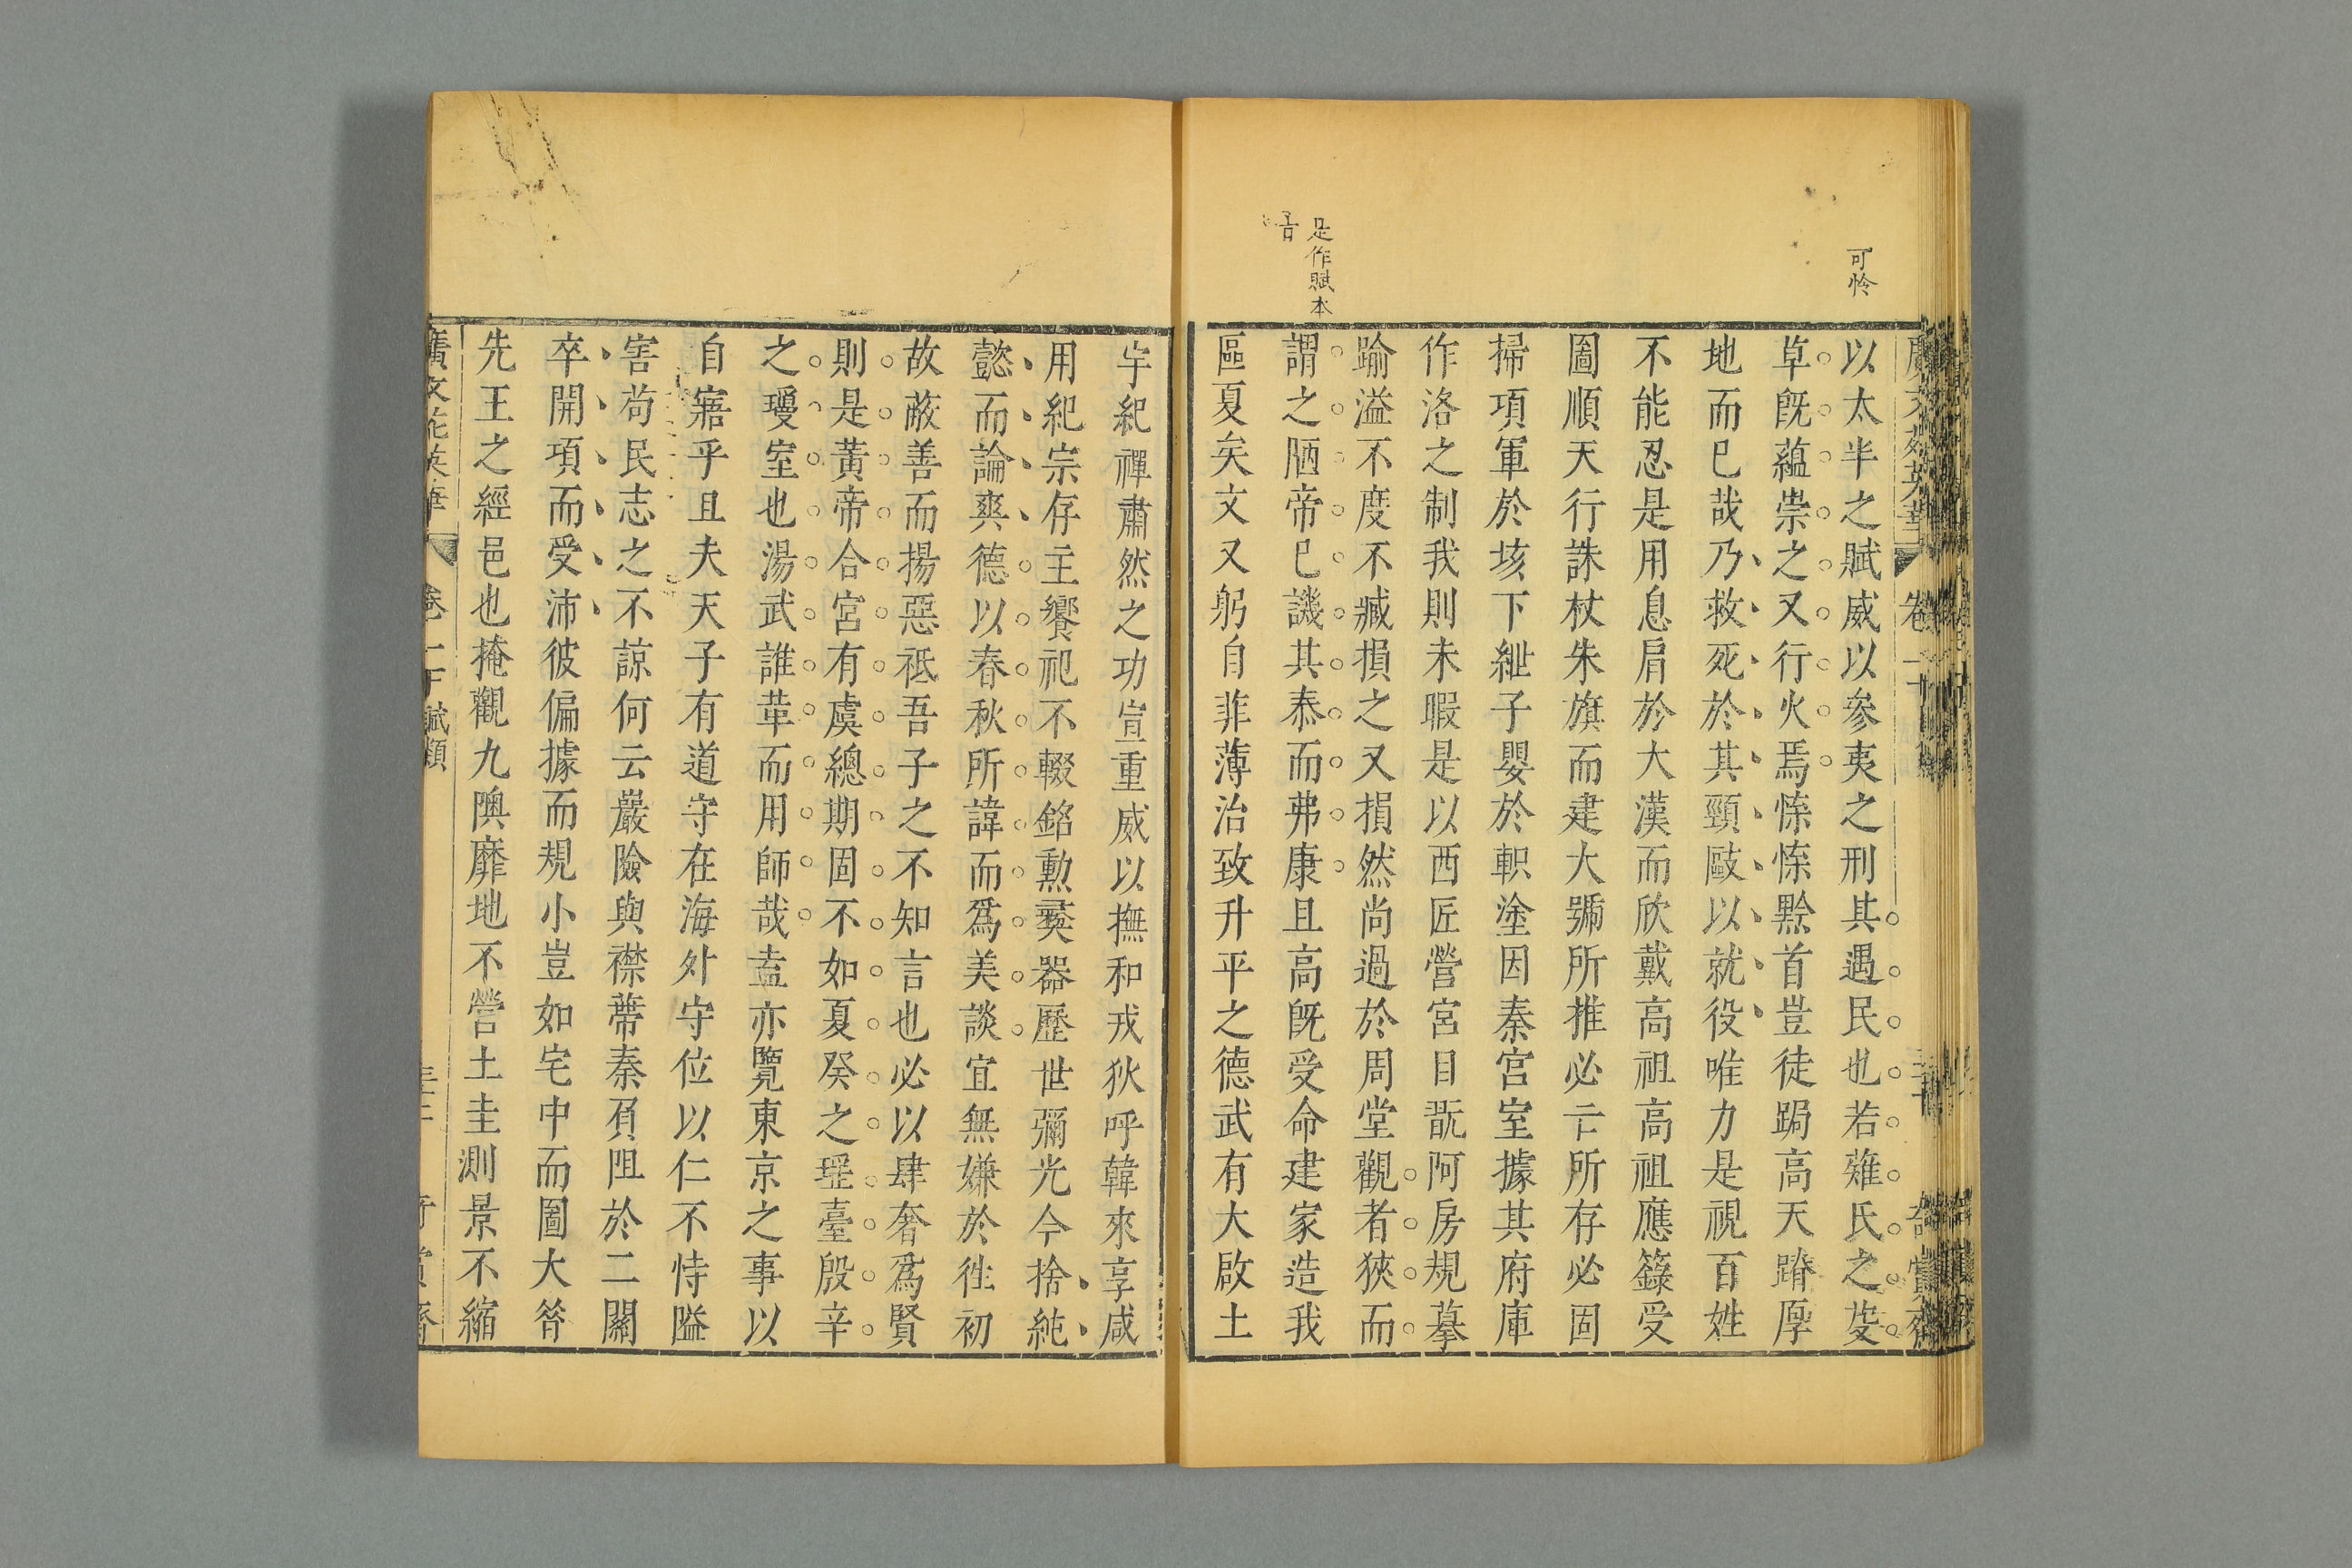 可怜
是作賦本
旨
以太半之賦威以參夷之刑其遇民也若薙氏之芟
草旣蘊崇之又行火焉慄慄黔首豈徒跼高天蹐厚
地而已哉乃救死於其頸敺以就役唯力是視百姓
不能忍是用息肩於大漢而欣戴高祖高祖應籙受
圖順天行誅杖朱旗而建大號所推必亡所存必固
掃項軍於垓下紲子嬰於軹塗因秦宮室據其府庫
作洛之制我則未暇是以西匠營宮目翫阿房規摹
踰溢不度不臧損之又損然尚過於周堂觀者狹而
謂之陋帝已譏其泰而弗康且高旣受命建家造我
區夏矣文又躬自菲薄治致升平之德武有大啟土
宇紀禪肅然之功宣重威以撫和戎狄呼韓來享咸
用紀宗存主饗祀不輟銘勲彝器歷世彌光今捨純
懿而論爽德以春秋所諱而爲美談宜無嫌於徃初
故蔽善而揚惡祗吾子之不知言也必以肆奢爲賢
則是黃帝合宮有虞總期固不如夏癸之瑶臺殷辛
之瓊室也湯武誰革而用師哉盍亦覽東京之事以
自寤乎且夫天子有道守在海外守位以仁不恃隘
害苟民志之不諒何云巖險與襟帶秦負阻於二關
卒開項而受沛彼偏據而規小豈如宅中而圖大昝
先王之經邑也掩觀九隩靡地不營土圭測景不縮
廣文苑英華 卷二十 賦類